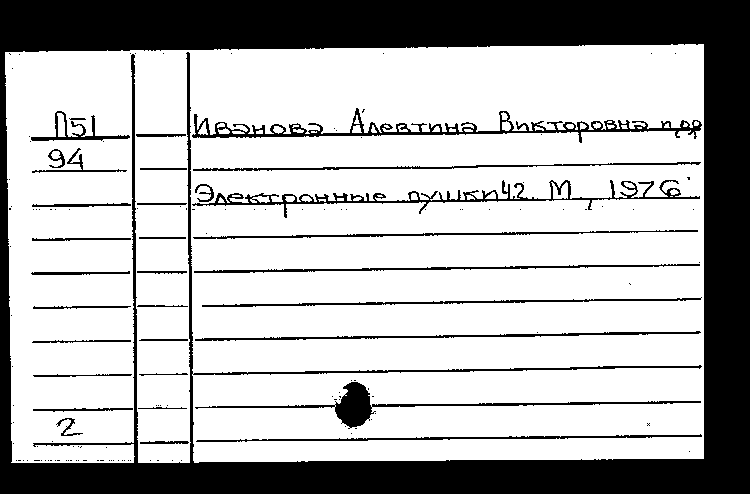 П51 Иванова Алевтина Викторовна и др
94
Электронные пушки ч.2 М, 1976
2